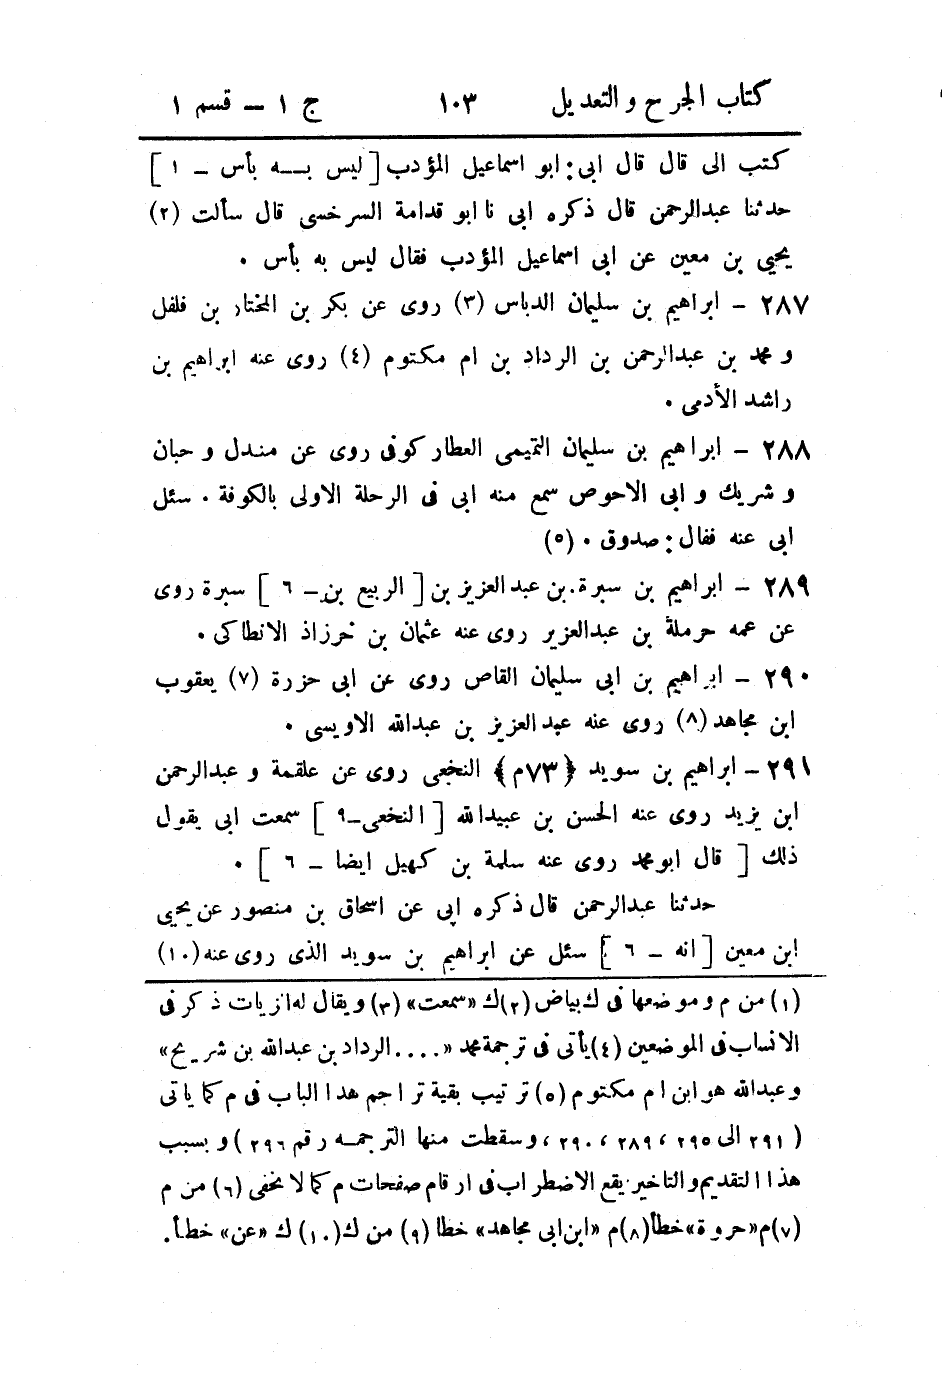 كتاب الجرح والتعديل ١٠٣ ج ١ – قسم ١
كتب الى قال قال ابى : ابو اسماعيل المؤدب [ ليس بـه بأس – ١ ]
حدثنا عبدالرحمن قال ذكره ابى نا ابو قدامة السرخسى قال سألت (٢)
يحيى بن معين عن ابى اسماعيل المؤدب فقال ليس به بأس .
٢٨٧ – ابراهيم بن سليمان الدباس (٣) روى عن بكر بن المختار بن فلفل
و محمد بن عبدالرحمن بن الرداد بن ام مكتوم (٤) روى عنه ابراهيم بن
راشد الأدمى .
٢٨٨ – ابراهيم بن سليمان التميمى العطار كوفى روى عن مندل و حبان
و شريك و ابى الاحوص سمع منه ابى فى الرحلة الاولى بالكوفة . سئل
ابى عنه فقال : صدوق . (٥)
٢٨٩ – ابراهيم بن سبرة بن عبد العزيز بن [ الربيع بن – ٦ ] سبرة روى
عن عمه حرملة بن عبدالعزيز روى عنه عثمان بن خرزاذ الانطاكى .
٢٩٠ – ابراهيم بن ابى سليمان القاص روى عن ابى حزرة (٧) يعقوب
ابن مجاهد (٨) روى عنه عبد العزيز بن عبدالله الاويسى .
٢٩١ – ابراهيم بن سويد ﴿٧٣م﴾ النخعى روى عن علقمة و عبدالرحمن
ابن يزيد روى عنه الحسن بن عبيدالله [ النخعى – ٩ ] سمعت ابى يقول
ذلك [ قال ابو محمد روى عنه سلمة بن كهيل ايضا – ٦ ] .
حدثنا عبدالرحمن قال ذكره ابى عن اسحاق بن منصور عن يحيى
ابن معين [ انه – ٦ ] سئل عن ابراهيم بن سويد الذى روى عنه (١٠)
(١) من م و موضعها فى ك بياض (٢) ك «سمعت» (٣) ويقال له الزيات ذكر فى
الانساب فى الموضعين (٤) يأتى فى ترجمة محمد «....الرداد بن عبدالله بن شريح»
وعبدالله هو ابن ام مكتوم (٥) ترتيب بقية تراجم هذا الباب فى م كما ياتى
(٢٩١ الى ٢٩٥ ، ٢٨٩ ، ٢٩٠ ، وسقطت منها الترجمـه رقم ٢٩٦ ) و بسبب
هذا التقديم والتاخير يقع الاضطراب فى ارقام صفحات م كما لا يخفى (٦) من م
(٧) م «حروة» خطأ (٨) م «ابن ابى مجاهد» خطا (٩) من ك (١٠) ك «عن» خطأ .